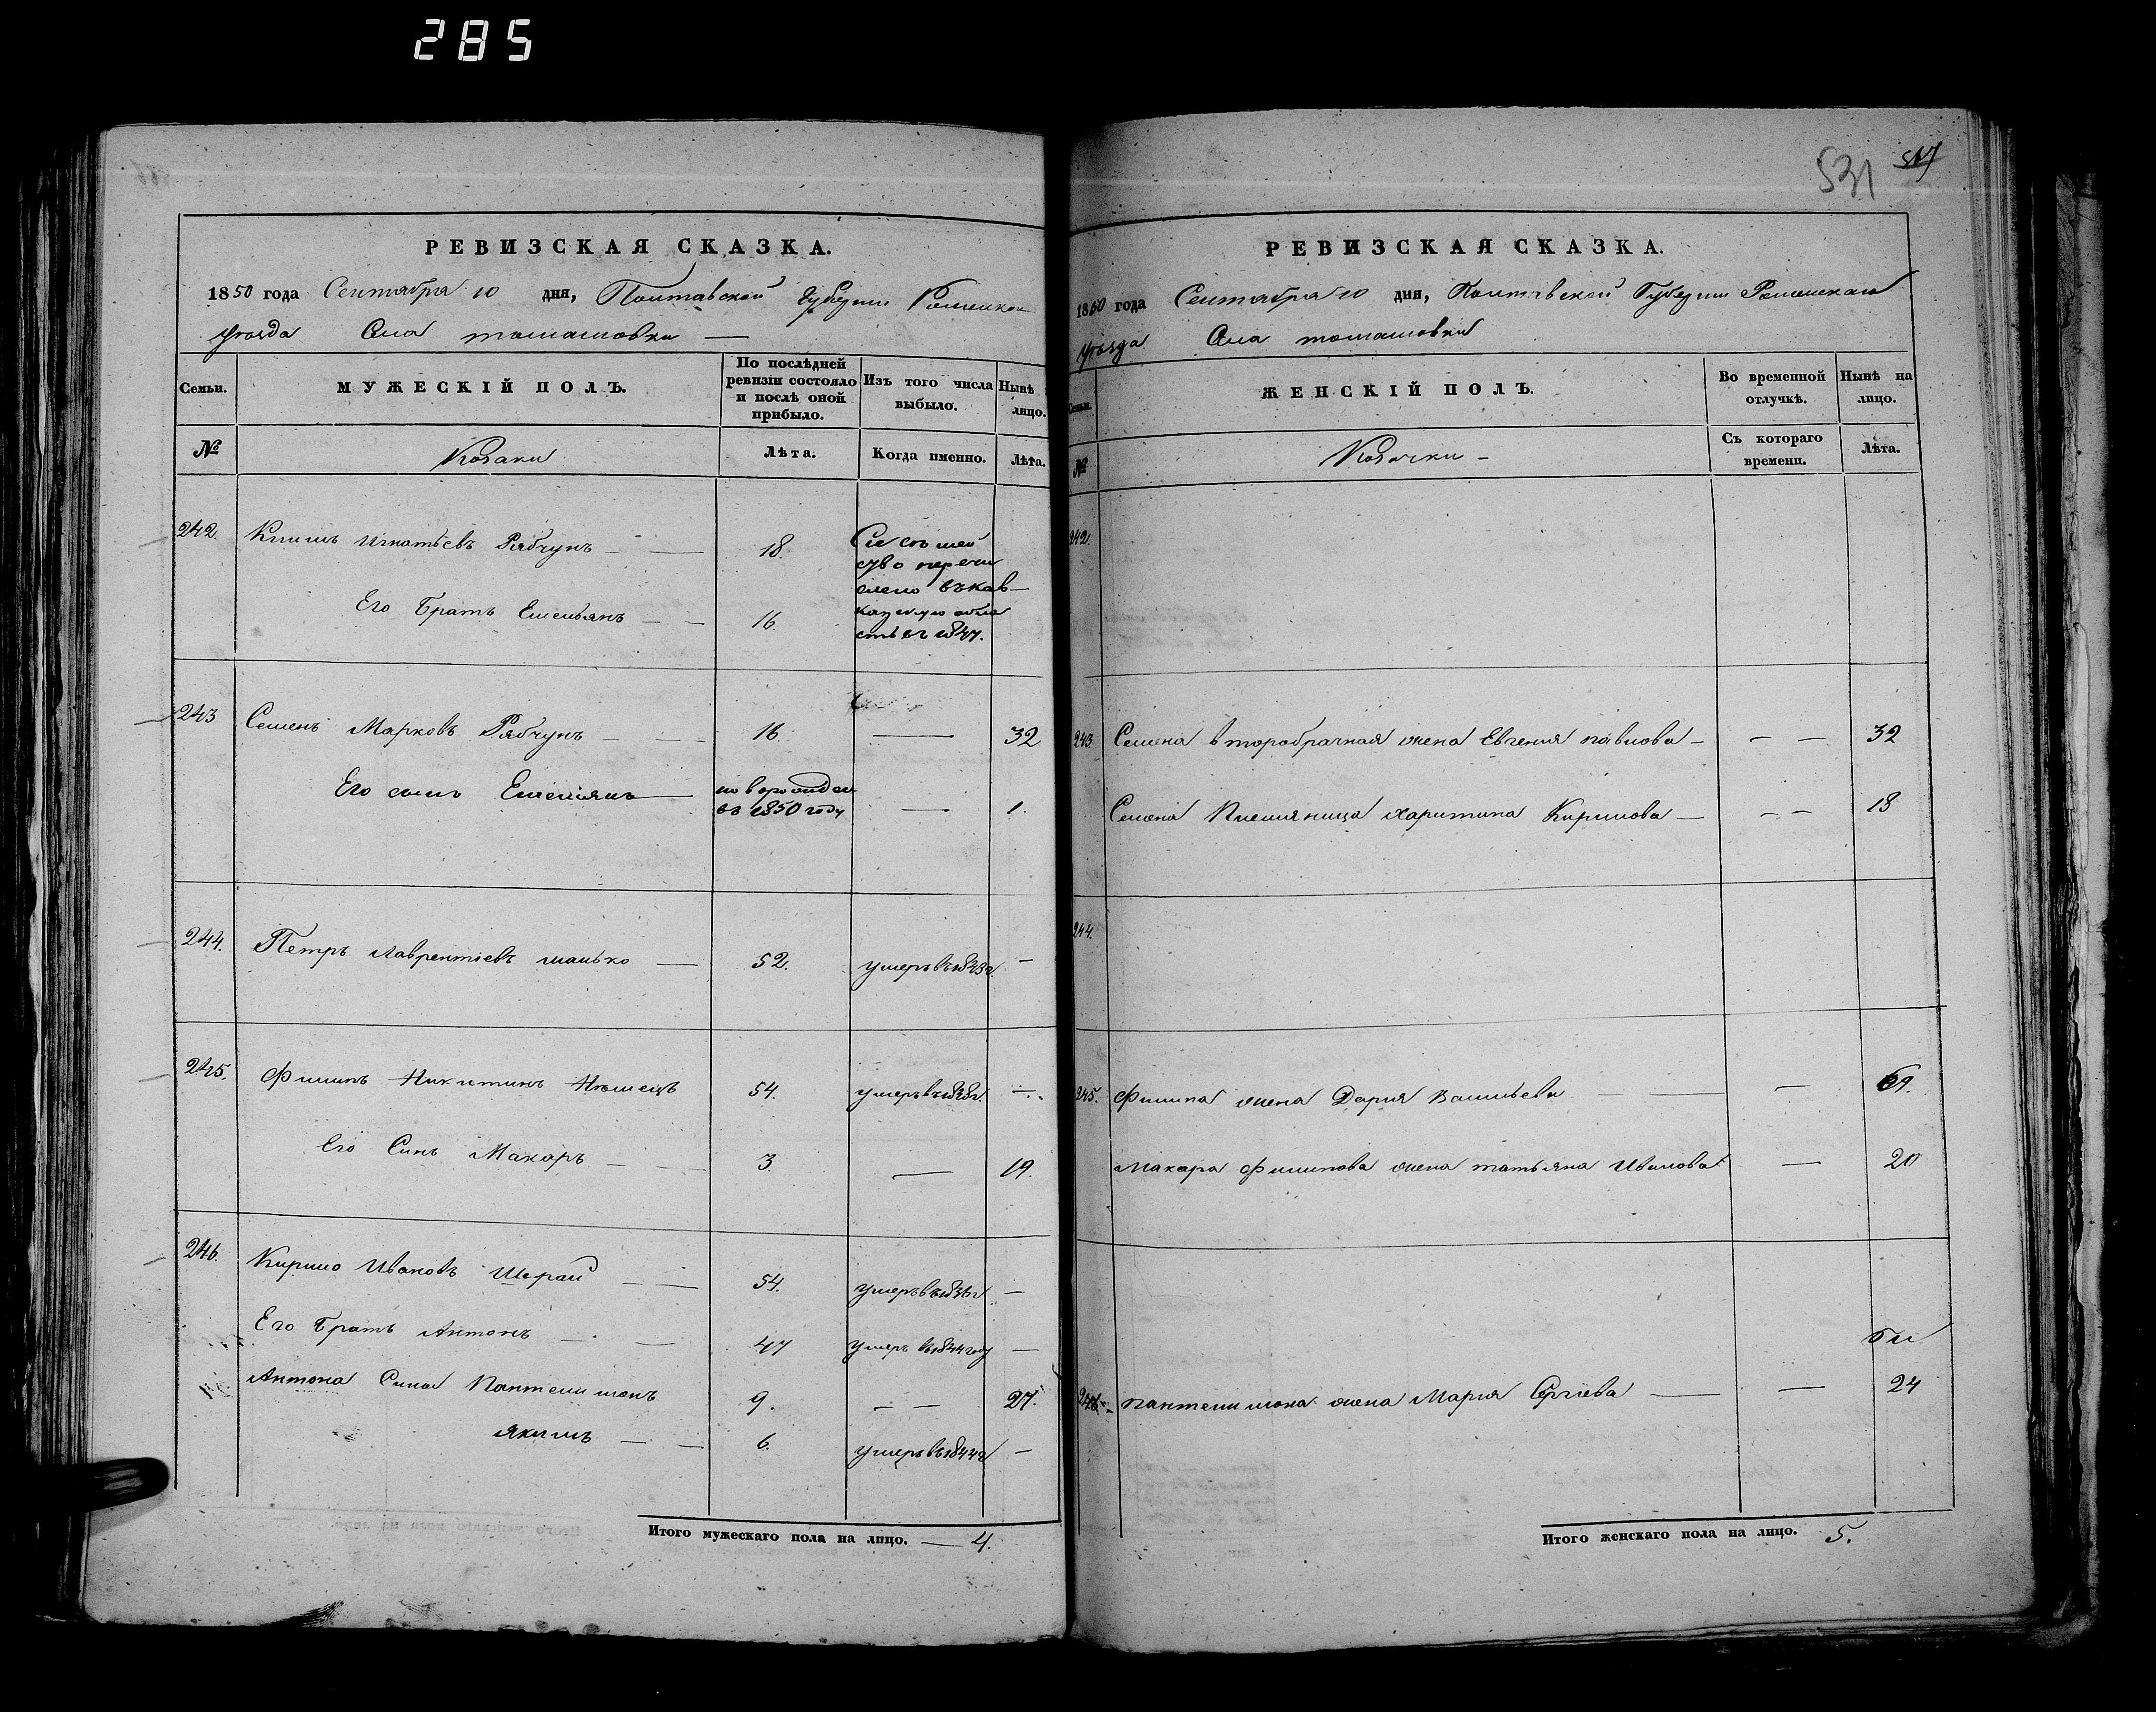 285
531 517
РЕВИЗСКАЯ СКАЗКА.
1850 года Сентября 10 дня, Полтавской Губернии Роменского
уѣзда Села томашовки —
Семьи. МУЖЕСКІЙ ПОЛЪ. По послѣдней ревизіи состояло и послѣ оной прибыло. Изъ того числа выбыло. Нынѣ лицо.
№ Козаки Лѣта. Когда именно. Лѣта.
242. Климъ Игнатьевъ Рябчунъ — — 18. Сіе семей
ство перечи
слено въ кав—
казскую обла
сть въ 1847.
Его Братъ Емельянъ — — 16.
243 Семенъ Марковъ Рябчунъ — — 16. — 32
Его сынъ Емельянъ — новорожден
въ 1850 году — 1.
244. Петръ Лаврентіевъ — 52. умеръ въ 1843г. —
245. Филипъ Никитинъ Нѣмецъ 54. умеръ въ 1838г. —
Его Синъ Макаръ — — 3. — 19.
246. Кирило Ивановъ Шерай — — 54. умеръ въ —
Его Братъ Антонъ — — 47 умеръ въ 1844 году —
Антона Сины Пантелимонъ 9. — — 27.
Якимъ — — 6. умеръ въ 1844г —
Итого мужескаго пола на лицо. — 4.
РЕВИЗСКАЯ СКАЗКА.
1850 года Сентября 10 дня, Полтавской Губернии Роменскаго
уѣзда Села томашовки
Семьи. ЖЕНСКІЙ ПОЛЪ. Во временной отлучкѣ. Нынѣ на лицо.
№ Козачки — Съ котораго времени. Лѣта.
242.
243. Семена второбрачная жена Евгения павлова — — — 32
Семена Племяница Харитина Кирилова — — — 18
244.
245. Филипа жена Дария Васильева — — — 69.
Макара Филипова жена татьяна Иванова — 20
246. — пантелимона жена Мария Сергіева — — 24
Итого женскаго пола на лицо. 5.